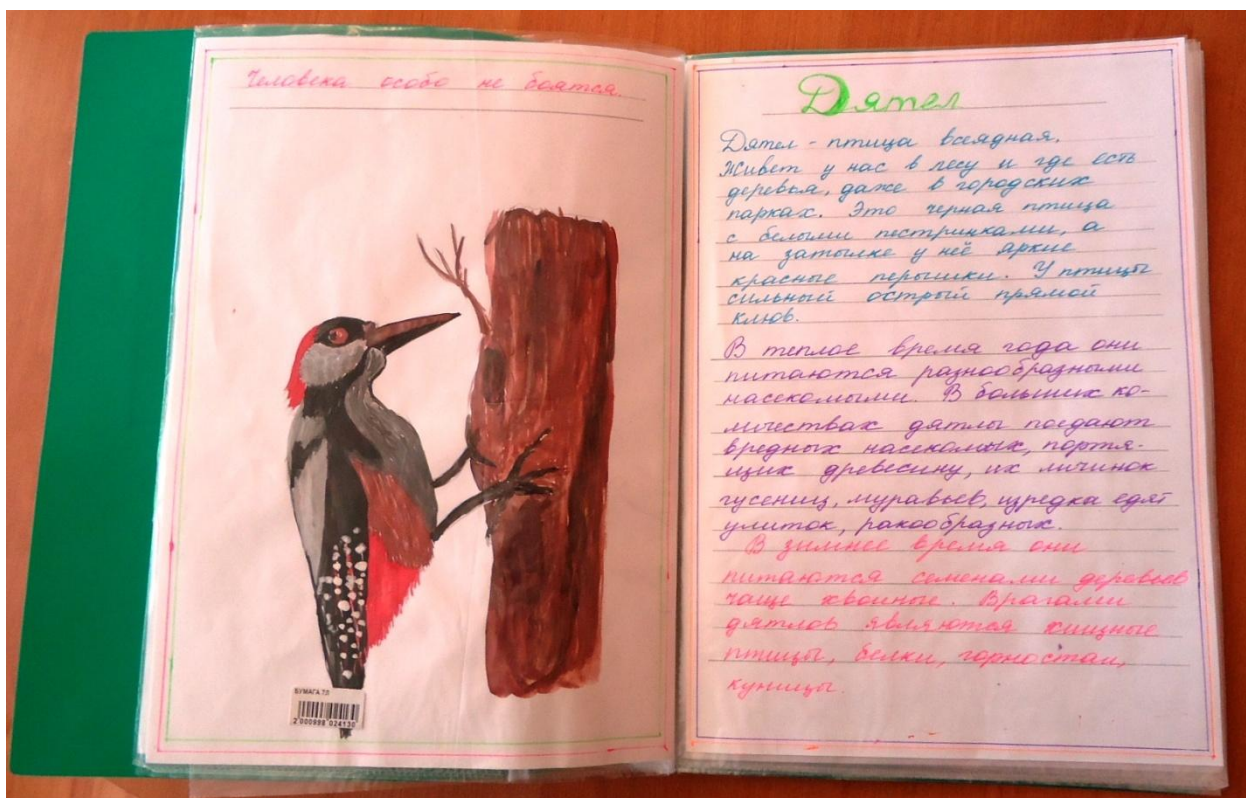 Человека особо не боятся.
БУМАГА 7Л
2 000998 024130
Дятел
Дятел - птица всеядная.
Живет у нас в лесу и где есть
деревья, даже в городских
парках. Это черная птица
с белыми пестринками, а
на затылке у неё яркие
красные перышки. У птицы
сильный острый прямой
клюв.
В теплое время года они
питаются разнообразными
насекомыми. В больших ко-
личествах дятлы поедают
вредных насекомых, портя-
щих древесину, их личинок
гусениц, муравьев, изредка едят
улиток, ракообразных.
В зимнее время они
питаются семенами деревьев
чаще хвойные. Врагами
дятлов являются хищные
птицы, белки, горностаи,
куницы.